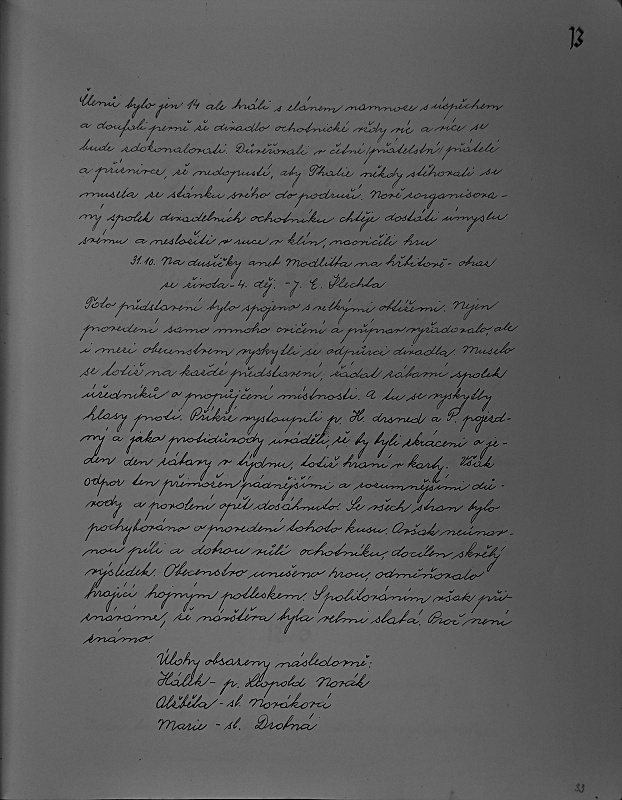 13
Členů bylo jen 14 ale hráli s elánem namnoze s úspěchem
a doufali pevně že divadlo ochotnické vždy víc a více se
bude zdokonalovati. Důvěřovali v četné přátelství přátelé
a příznivce, že nedopustí, aby Thalie někdy stěhovali se
musela se stánku svého do podruží. Nově zorganisova-
ný spolek divadelních ochotníku chtěje dostáti úmyslu
svému a nesložiti v ruce v klín, nacvičili hru
31.10. Na dušičky aneb Modlitba na hřbitově - obraz
ze života - 4. děj. - J. E. Šlechta
Toto představení bylo spojeno s velkými obtížemi. Nejen
provedení samo mnoho cvičení a příprav vyžadovalo, ale
i mezi obecenstvem vyskytli se odpůrci divadla. Muselo
se totiž na každé představení, žádat zábavní spolek
úředníků o propůjčení místnosti. A tu se vyskytly
hlasy proti. Příkře vystoupili p. H. drsned a P. pojezd-
ný a jako protidůvody uváděli, že by byli zkráceni o je-
den den zábavy v týdnu, totiž hraní v karty. Však
odpor ten přemožen pádnějšími a rozumnějšími dů-
vody a povolení opět dosáhnuto. Se všech stran bylo
pochybováno o provedení tohoto kusu. Avšak neúnav-
nou pílí a dobrou vůlí ochotníku, docílen skvělý
výsledek. Obecenstvo unešeno hrou, odměňovalo
hrající hojným potleskem. S politováním však při-
znáváme, že návštěva byla velmi slabá. Proč není
známo.
Úlohy obsazeny následovně:
Hálek - p. Leopold Novák
Alžběta - sl. Nováková
Marie - sl. Drobná
33